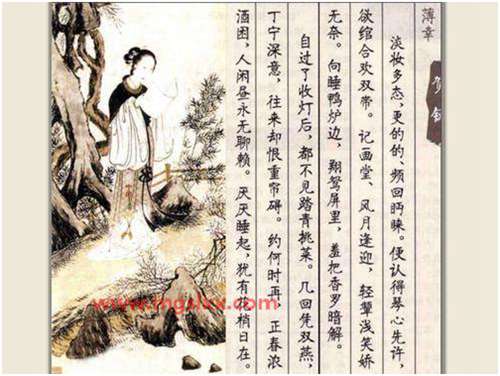 薄幸
贺铸
淡妆多态,更的的、频回眄睐。便认得琴心先许,
欲绾合欢双带。记画堂、风月逢迎,轻颦浅笑娇
无奈。向睡鸭炉边,翔鸳屏里,羞把香罗暗解。
自过了收灯后,都不见踏青挑菜。几回凭双燕,
丁宁深意,往来却恨重帘碍。约何时再,正春浓
酒困,人闲昼永无聊赖。厌厌睡起,犹有花梢日在。